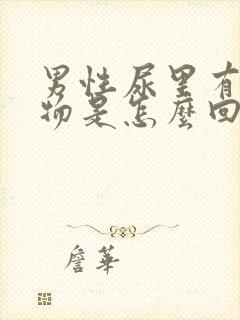 男性尿里有
物是怎麼回
詹華